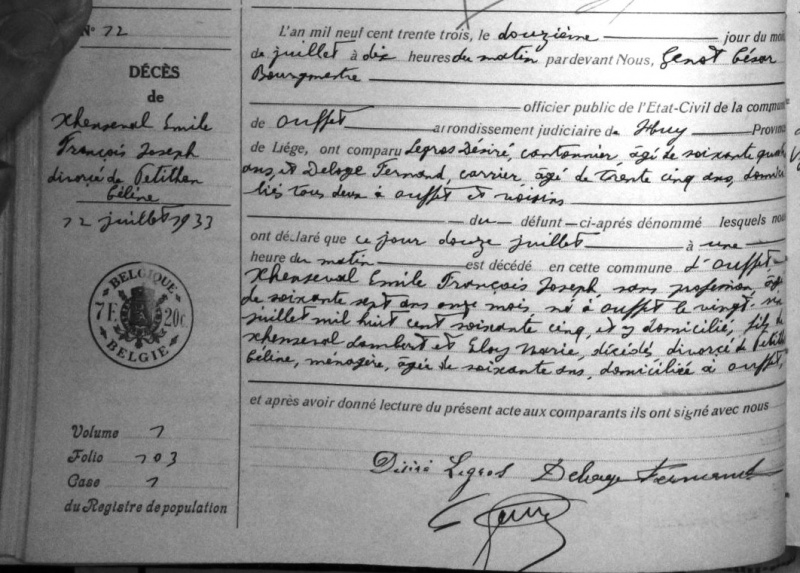 N° 12
DÉCÈS
de
Xhenseval Emile
François Joseph
divorcé de Petithan
Céline
12 juillet 1933
BELGIQUE
7 F. 20 c.
BELGIE
Volume 1
Folio 103
Case 1
du Registre de population
L'an mil neuf cent trente trois, le douzième jour du mo
de juillet à dix heures du matin pardevant Nous, Genot César
Bourgmestre
officier public de l'Etat-Civil de la commun
de Ouffet arrondissement judiciaire de Huy Provin
de Liége, ont comparu Legros Désiré, cantonnier, âgé de soixante
ans, et Deloge Fernand, carrier, âgé de trente cinq ans, domici
liés tous deux à Ouffet et voisins
du défunt ci-après dénommé lesquels nou
ont déclaré que ce jour douze juillet à une
heure du matin est décédé en cette commune d'Ouffet
Xhenseval Emile François Joseph sans profession, âgé
de soixante sept ans onze mois né à Ouffet le vingt
juillet mil huit cent soixante cinq, et y domicilié, fils de
Xhenseval Lambert et Eloy Marie, décédés divorcé de Petith
Céline, ménagère, âgée de soixante ans, domiciliée à Ouffet,
et après avoir donné lecture du présent acte aux comparants ils ont signé avec nous
Désiré Legros Deloge Fernand